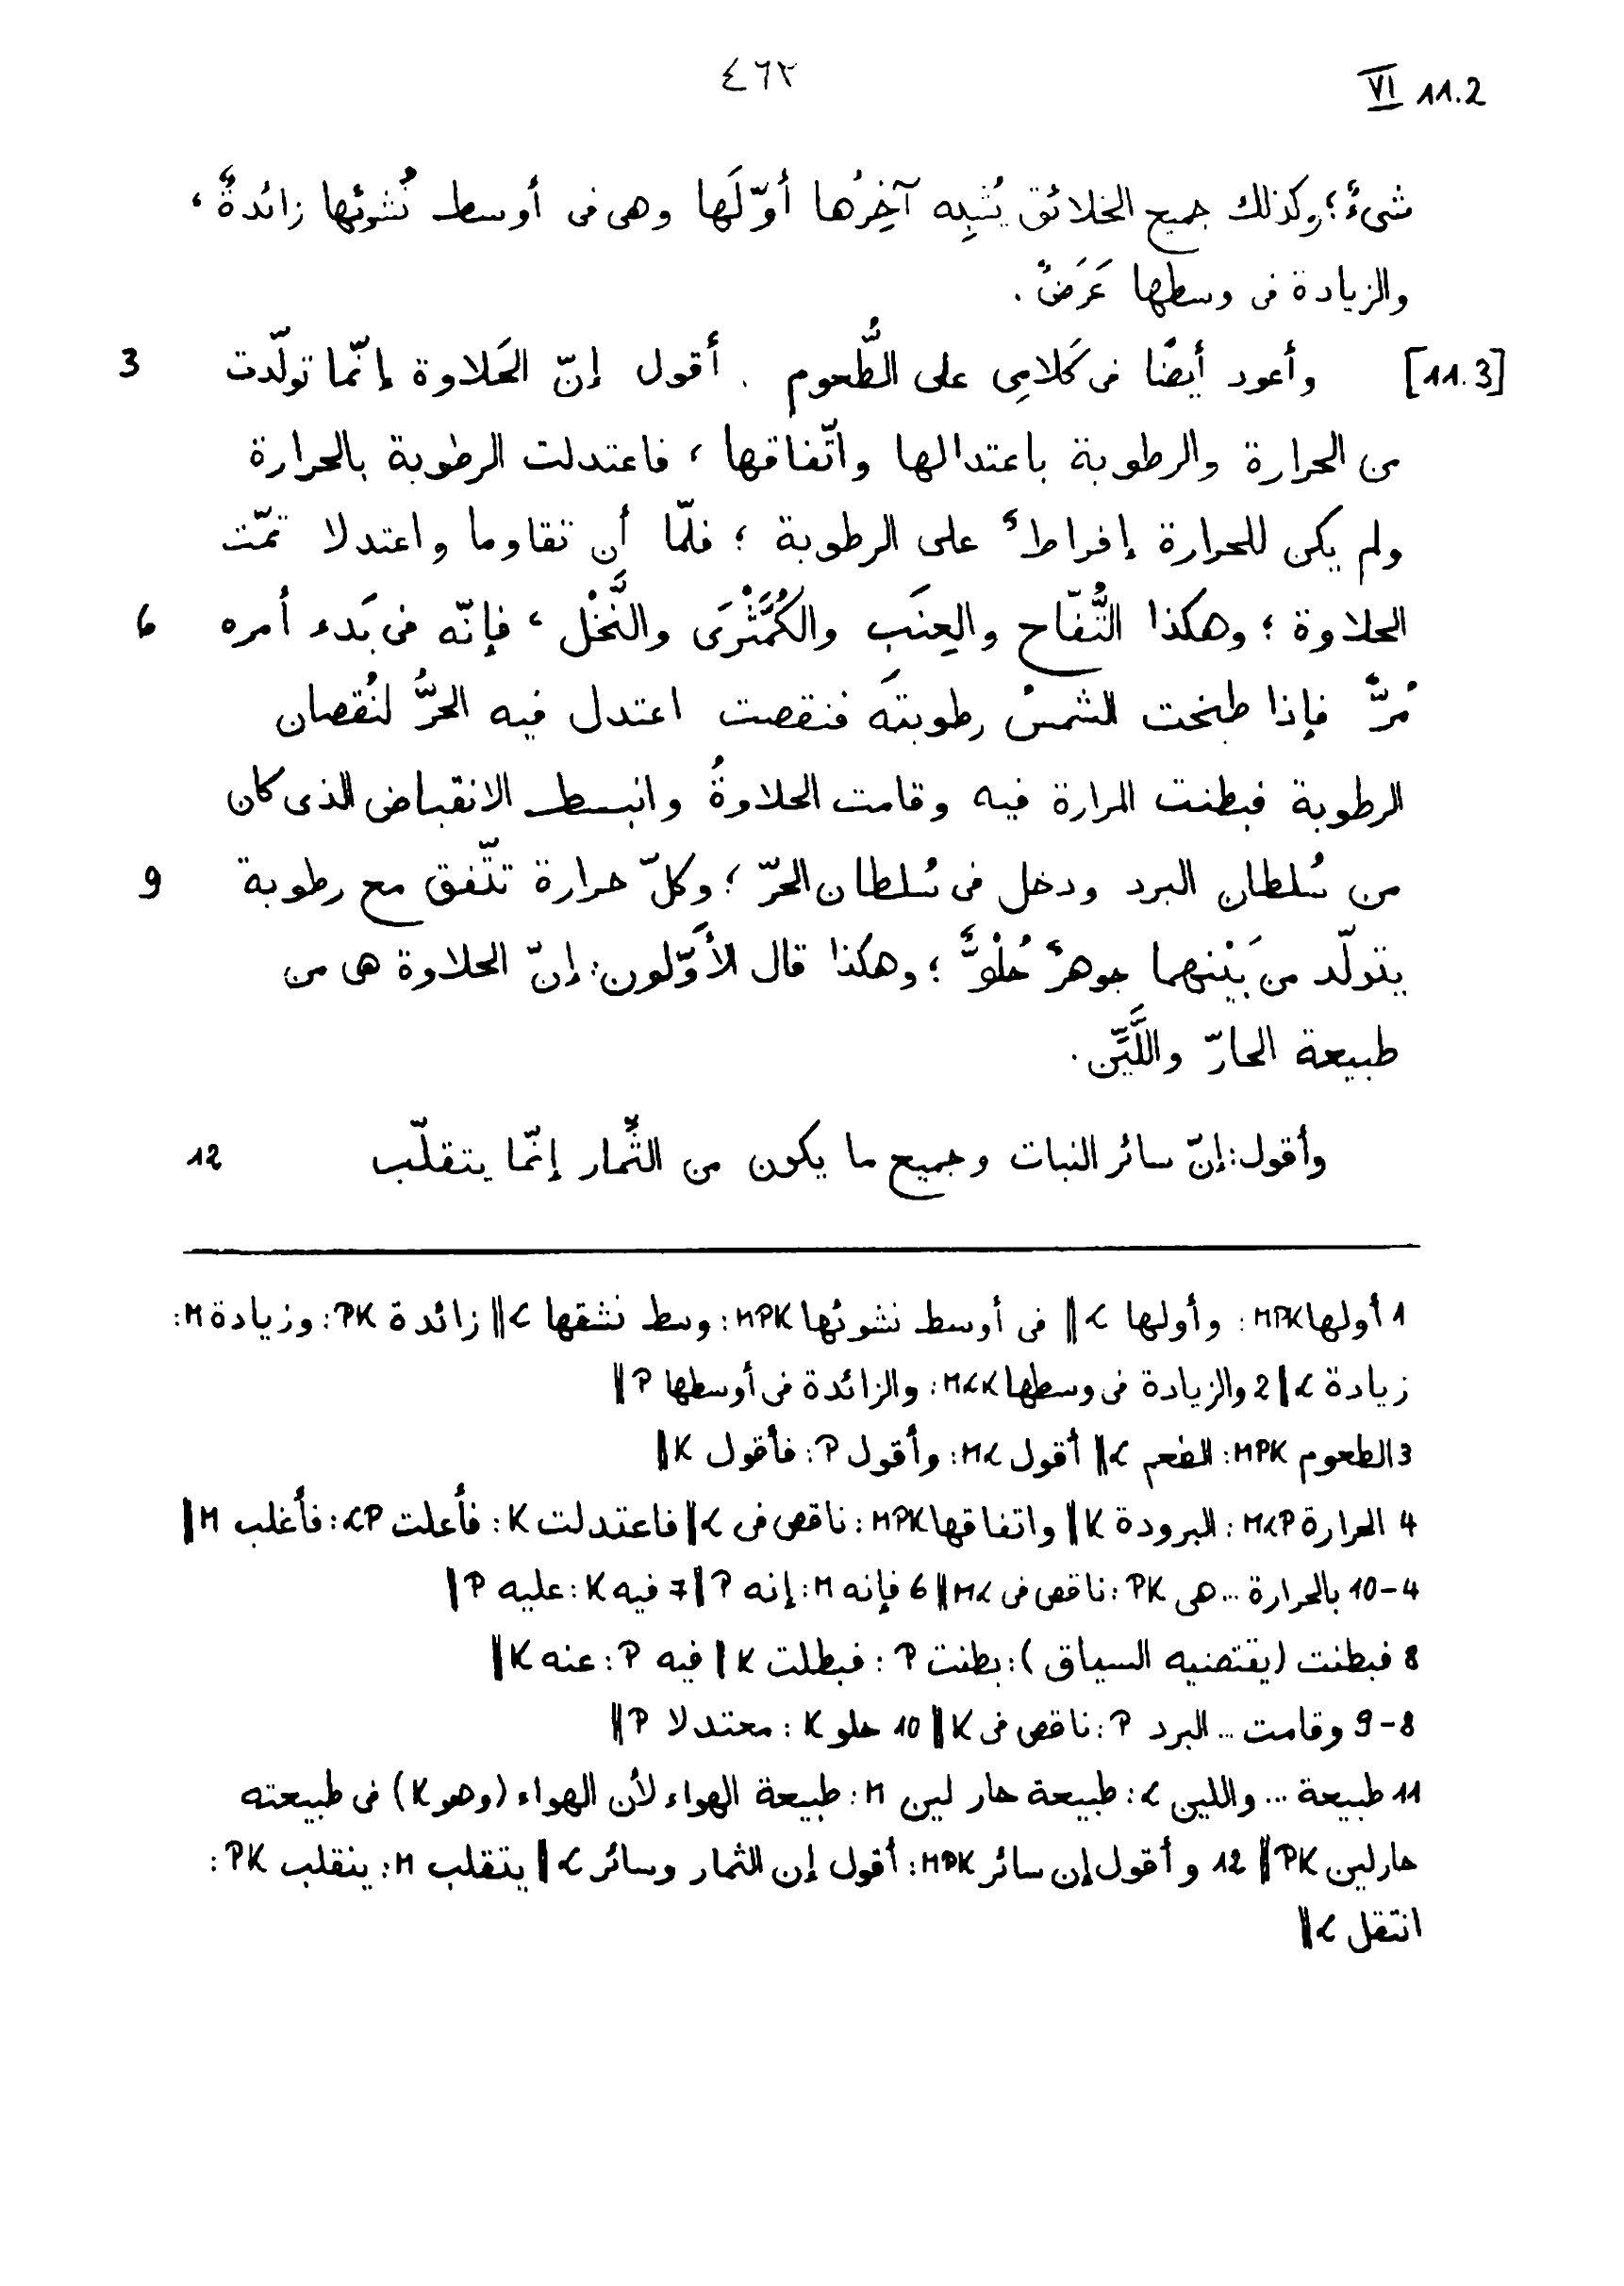 ٤٦٢
VI 11.2
شىءٌ؛ وكذلك جميع الخلائق يُشبِه آخِرُها أوّلَها وهى فى أوسط نُشوئها زائدةٌ،
والزيادة فى وسطها عَرَضٌ.
3 [11.3] وأعود أيضًا فى كَلامِى على الطُّعوم. أقول إنّ الحَلاوة إنّما تولّدت
من الحرارة والرطوبة باعتدالها واتّفاقها، فاعتدلت الرطوبة بالحرارة
ولم يكن للحرارة إفراطٌ على الرطوبة؛ فلمّا أن تقاوما واعتدلا تمّت
6 الحلاوة؛ وهكذا التُّفّاح والعِنَب والكُمَّثْرَى والنَّخْل، فإنّه فى بَدء أمره
مُرٌّ فإذا طبخت الشمسُ رطوبتَه فنقصت اعتدل فيه الحَرُّ لنُقصان
الرطوبة فبطنت المرارة فيه وقامت الحلاوةُ وانبسط الانقباض الذى كان
9 من سُلطان البرد ودخل فى سُلطان الحرّ؛ وكلّ حرارة تتّفق مع رطوبة
يتولّد من بَيْنهما جوهرٌ حُلْوٌ؛ وهكذا قال الأَوّلون: إنّ الحلاوة هى من
طبيعة الحارّ واللَّيِّن.
12 وأقول: إنّ سائر النبات وجميع ما يكون من الثِّمار إنّما يتقلّب
1 أولها MPK: وأولها L || فى أوسط نشوئها MPK: وسط نشقها L || زائدة PK: وزيادة M:
زيادة L || 2 والزيادة فى وسطها MLK: والزائدة فى أوسطها P ||
3 الطعوم MPK: الطعم L || أقول ML: وأقول P: فأقول K ||
4 الحرارة MLP: البرودة K || واتفاقها MPK: ناقص فى L || فاعتدلت K: فأعلت LP: فأغلب M ||
4-10 بالحرارة ... هى PK: ناقص فى ML || 6 فإنه M: إنه P || 7 فيه K: عليه P ||
8 فبطنت (يقتضيه السياق): بطنت P: فبطلت K || فيه P: عنه K ||
8-9 وقامت ... البرد P: ناقص فى K || 10 حلو K: معتدلا P ||
11 طبيعة ... واللين L: طبيعة حار لين M: طبيعة الهواء لأن الهواء (وهو K) فى طبيعته
حار لين PK || 12 وأقول إن سائر MPK: أقول إن الثمار وسائر L || يتقلب M: ينقلب PK:
انتقل L ||